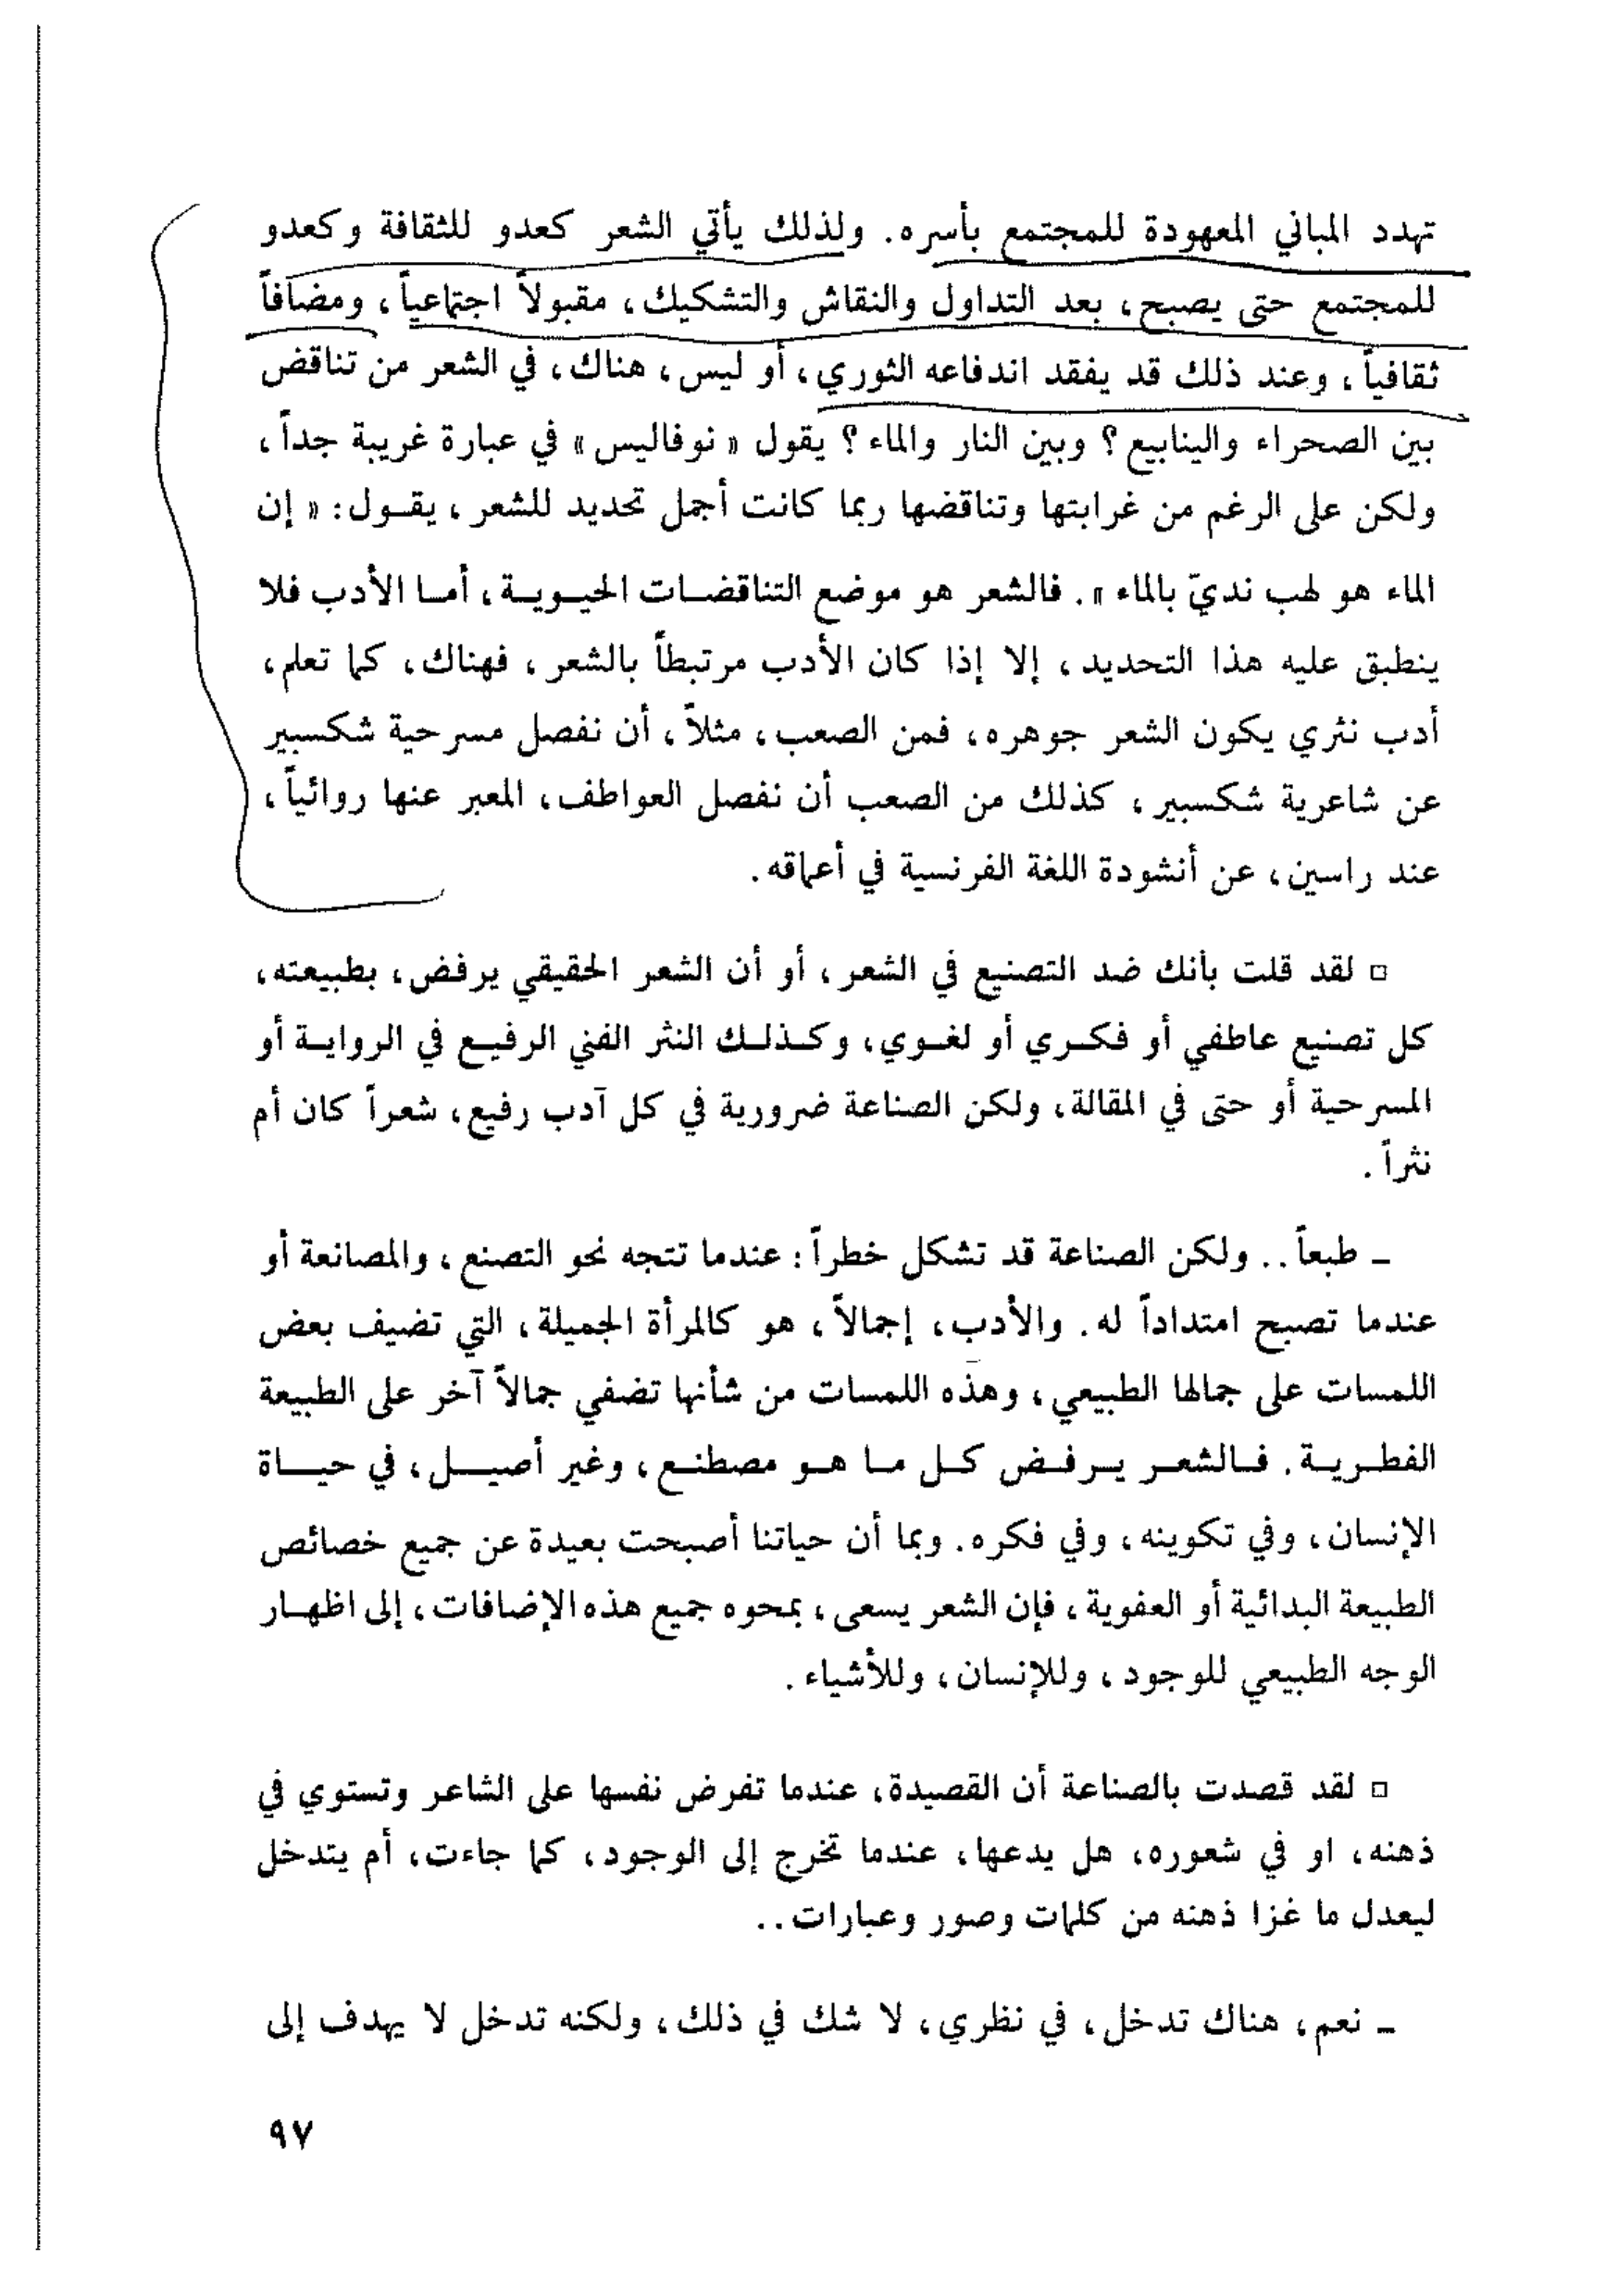 تهدد المباني المعهودة للمجتمع بأسره. ولذلك يأتي الشعر كعدو للثقافة وكعدو
للمجتمع حتى يصبح، بعد التداول والنقاش والتشكيك، مقبولاً اجتماعياً، ومضافاً
ثقافياً، وعند ذلك قد يفقد اندفاعه الثوري، أو ليس، هناك، في الشعر من تناقض
بين الصحراء والينابيع؟ وبين النار والماء؟ يقول « نوفاليس » في عبارة غريبة جداً،
ولكن على الرغم من غرابتها وتناقضها ربما كانت أجمل تحديد للشعر، يقـول: « إن
الماء هو لهب نديّ بالماء ». فالشعر هو موضع التناقضـات الحيـويـة، أمـا الأدب فلا
ينطبق عليه هذا التحديد، إلا إذا كان الأدب مرتبطاً بالشعر، فهناك، كما تعلم،
أدب نثري يكون الشعر جوهره، فمن الصعب، مثلاً، أن نفصل مسرحية شكسبير
عن شاعرية شكسبير، كذلك من الصعب أن نفصل العواطف، المعبر عنها روائياً،
عند راسين، عن أنشودة اللغة الفرنسية في أعماقه.
□ لقد قلت بأنك ضد التصنيع في الشعر، أو أن الشعر الحقيقي يرفض، بطبيعته،
كل تصنيع عاطفي أو فكـري أو لغـوي، وكـذلـك النثر الفني الرفيـع في الروايـة أو
المسرحية أو حتى في المقالة، ولكن الصناعة ضرورية في كل آدب رفيع، شعراً كان أم
نثراً.
ـ طبعاً.. ولكن الصناعة قد تشكل خطراً: عندما تتجه نحو التصنع، والمصانعة أو
عندما تصبح امتداداً له. والأدب، إجمالاً، هو كالمرأة الجميلة، التي تضيف بعض
اللمسات على جمالها الطبيعي، وهذه اللمسات من شأنها تضفي جمالاً آخر على الطبيعة
الفطـريـة. فـالشعـر يـرفـض كـل مـا هـو مصطنـع، وغير أصيـل، في حيـاة
الإنسان، وفي تكوينه، وفي فكره. وبما أن حياتنا أصبحت بعيدة عن جميع خصائص
الطبيعة البدائية أو العفوية، فإن الشعر يسعى، بمحوه جميع هذه الإضافات، إلى اظهـار
الوجه الطبيعي للوجود، وللإنسان، وللأشياء.
□ لقد قصدت بالصناعة أن القصيدة، عندما تفرض نفسها على الشاعر وتستوي في
ذهنه، او في شعوره، هل يدعها، عندما تخرج إلى الوجود، كما جاءت، أم يتدخل
ليعدل ما غزا ذهنه من كلمات وصور وعبارات..
ـ نعم، هناك تدخل، في نظري، لا شك في ذلك، ولكنه تدخل لا يهدف إلى
٩٧